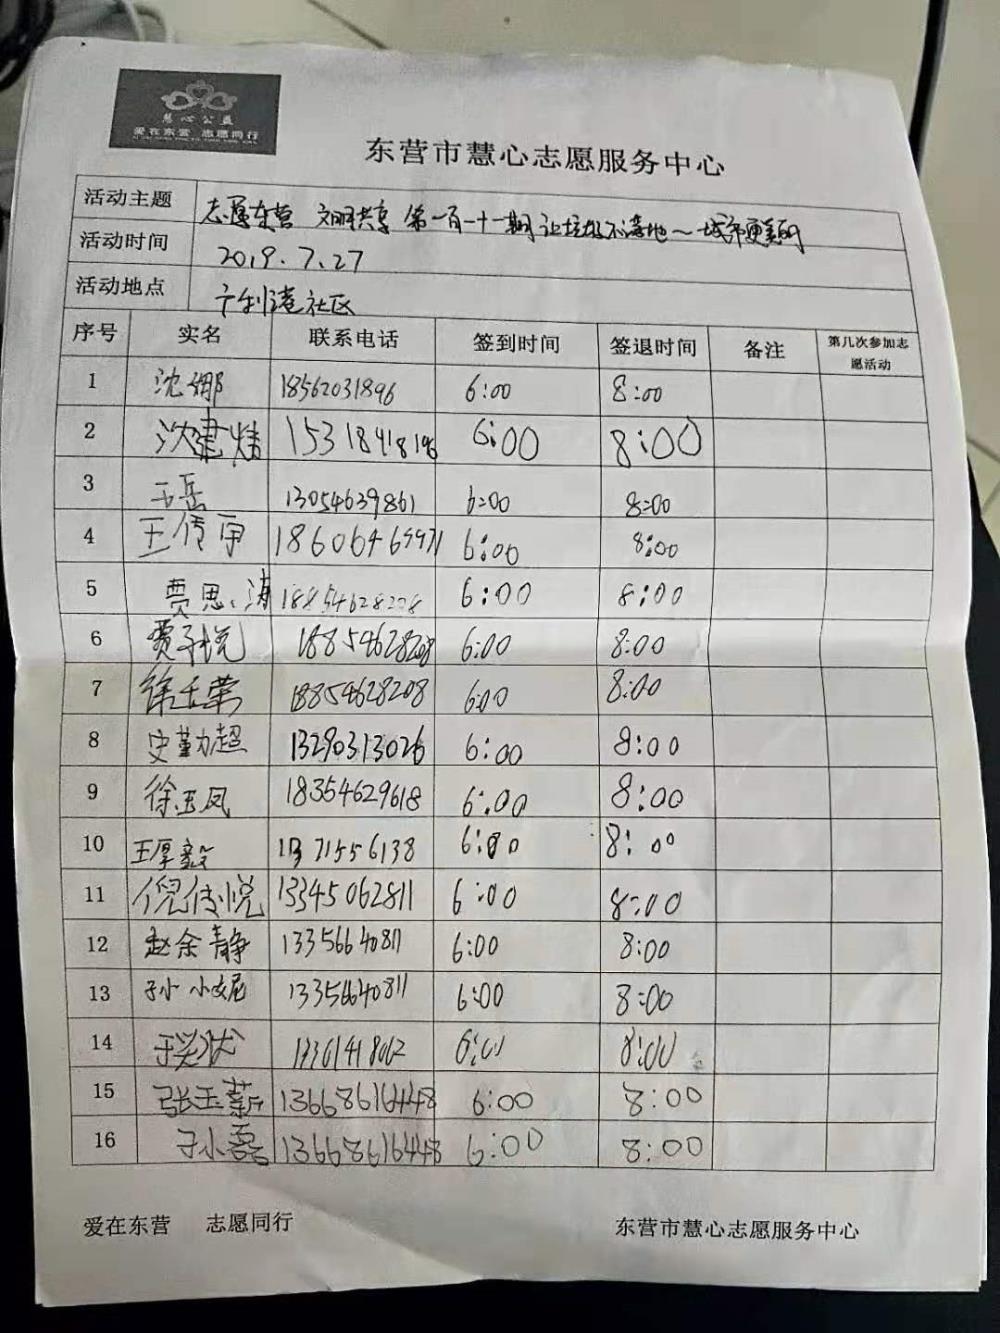 慧心公益
爱在东营 志愿同行
东营市慧心志愿服务中心
活动主题 志愿东营 文明共享 第一百一十一期 让垃圾不落地~城市更美丽
活动时间 2019.7.27
活动地点 广利港社区
序号 实名 联系电话 签到时间 签退时间 备注 第几次参加志愿活动
1 沈娜 18562031896 6:00 8:00
2 沈建 15318418196 6:00 8:00
3 王岳 13054639861 6:00 8:00
4 王传 6:00 8:00
5 贾思涛 18854628208 6:00 8:00
6 贾子悦 18854628208 6:00 8:00
7 徐玉荣 18854628208 6:00 8:00
8 史勤超 13290313026 6:00 8:00
9 徐玉凤 18354629618 6:00 8:00
10 王厚毅 13371556138 6:00 8:00
11 倪传悦 13345062811 6:00 8:00
12 赵余静 13356640811 6:00 8:00
13 孙小妮 13356640811 6:00 8:00
14 6:00 8:00
15 张玉薪 13668616448 6:00 8:00
16 于小磊 13668616448 6:00 8:00
爱在东营 志愿同行 东营市慧心志愿服务中心